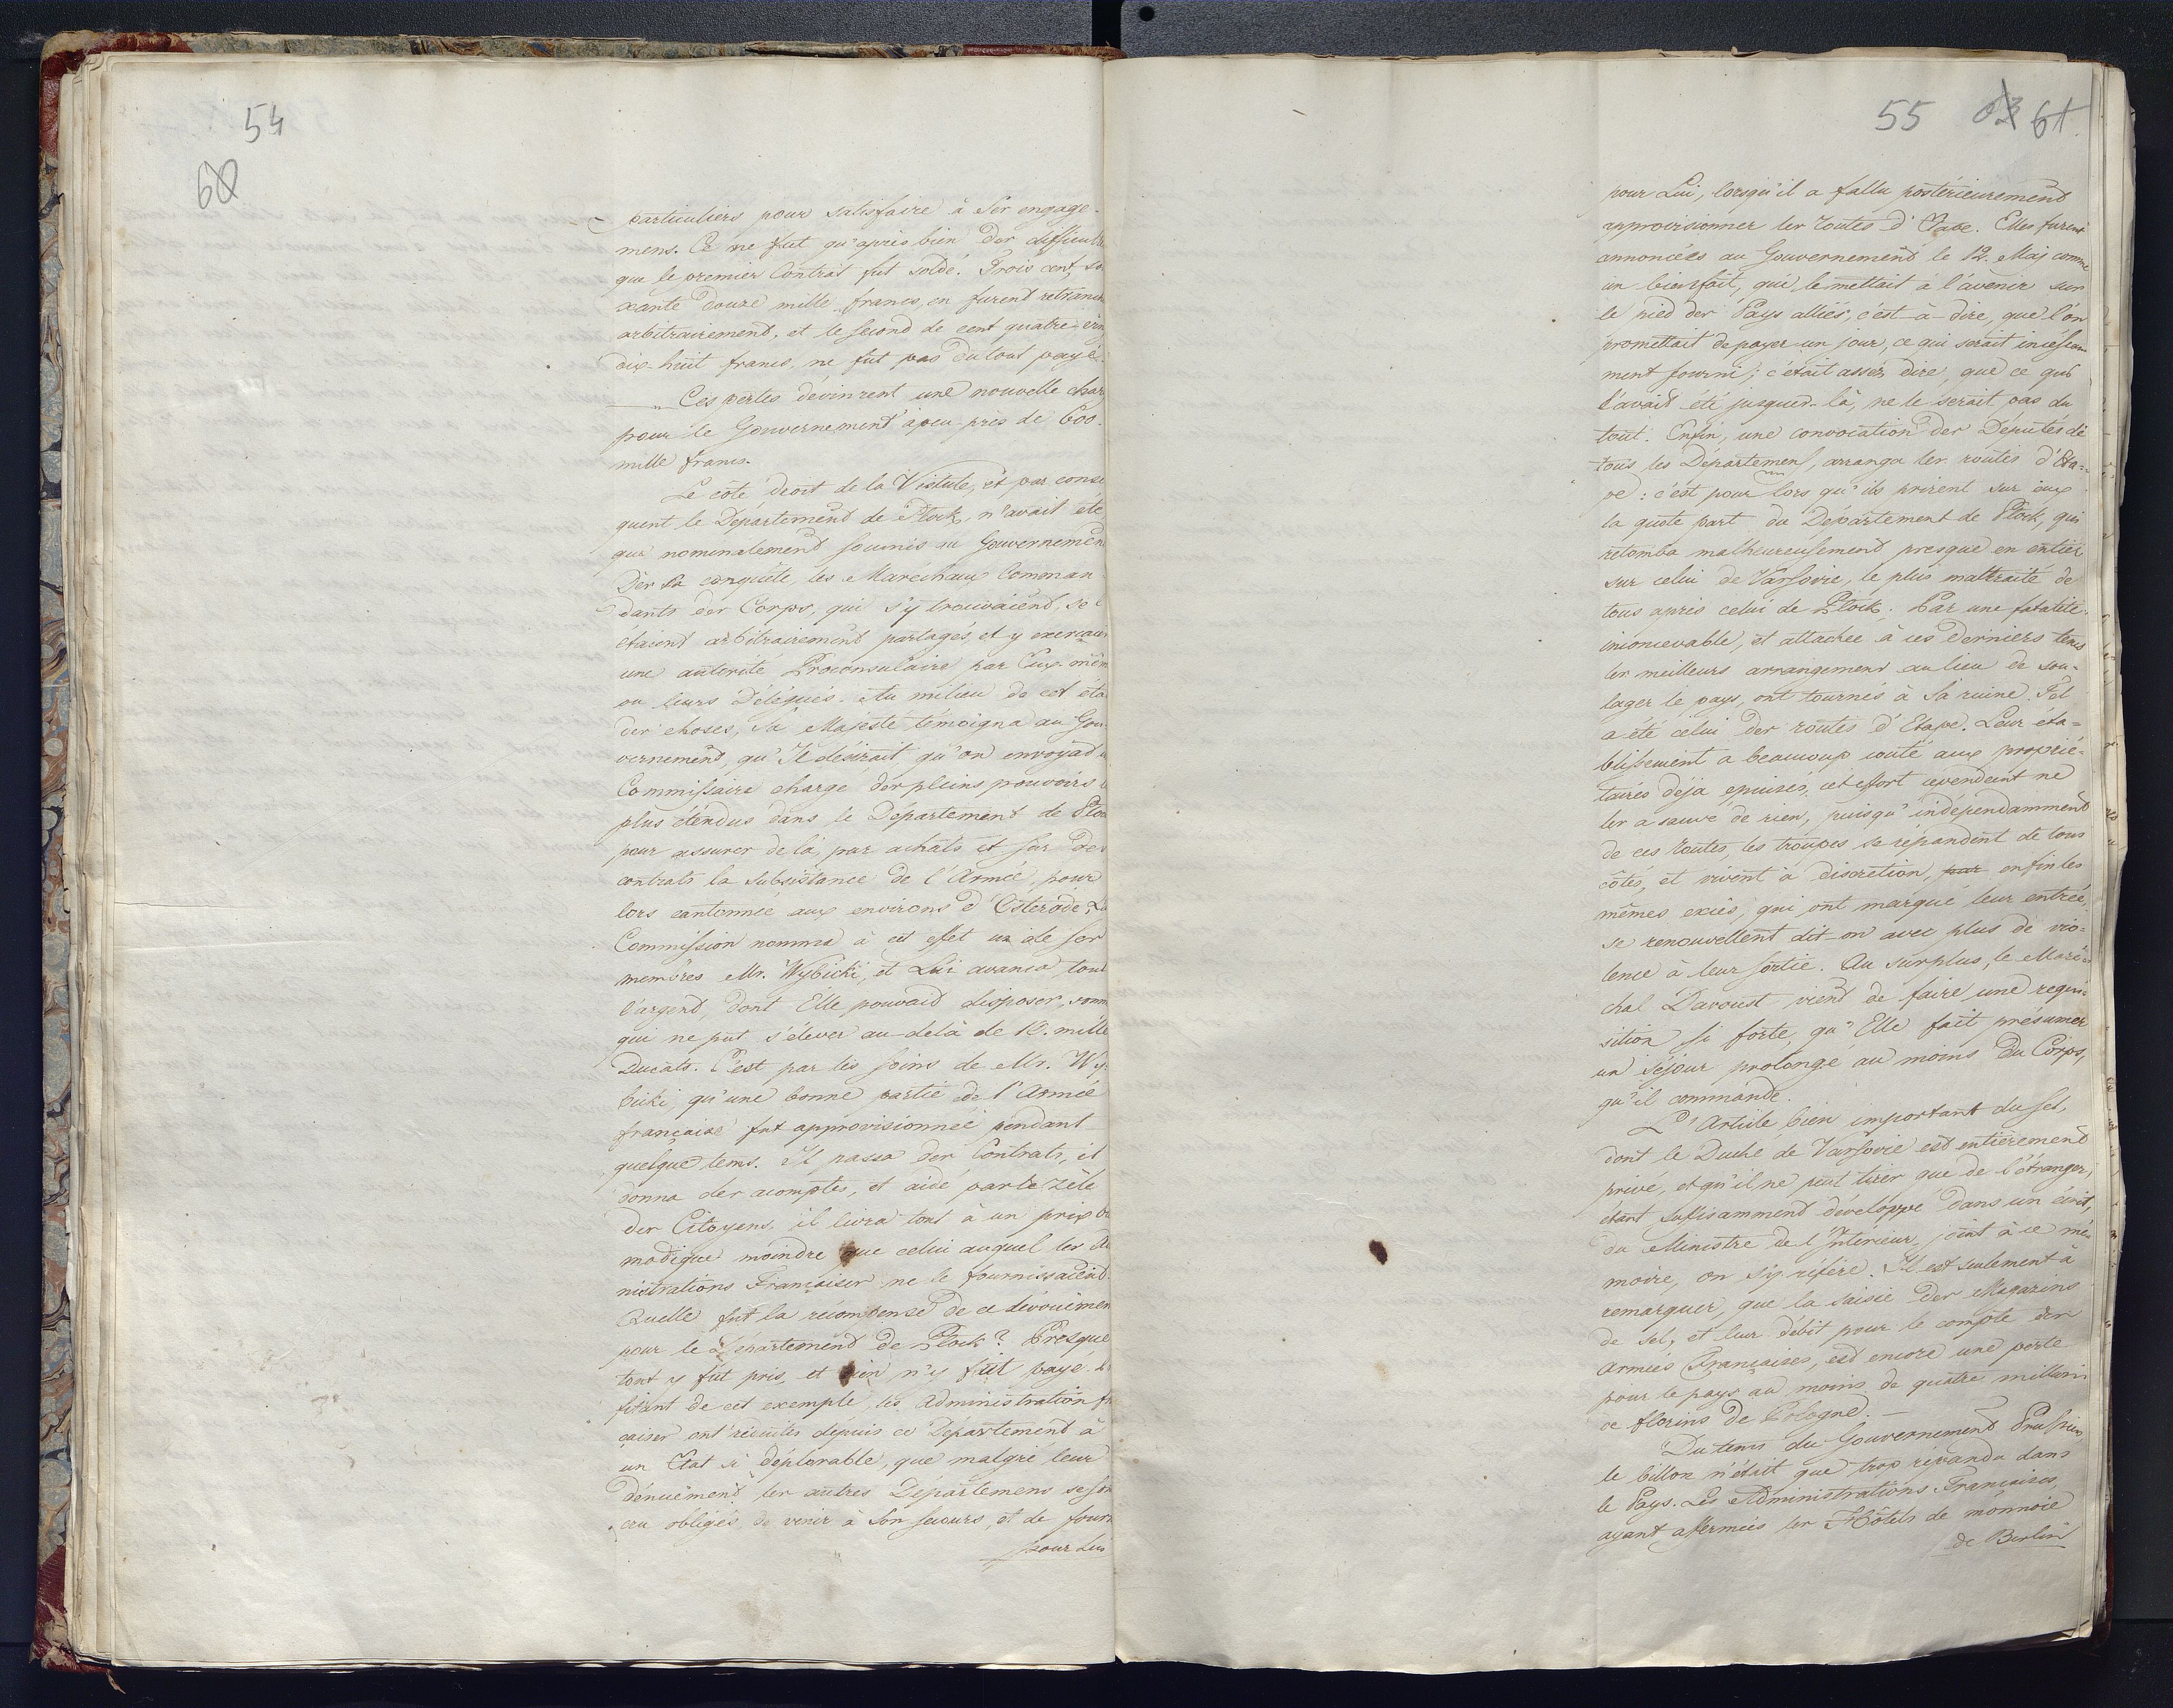 54
60
particuliers pour satisfaire à Ses engage-
mens. Ce ne fut qu'après bien des difficult
que le premier Contrat fut soldé. Trois cent, soi
xante douze mille francs, en furent retranch
arbitrairement, et le second de cent quatre-vin
dix-huit francs, ne fut pas du tout payé.
„ Ces pertes dévinrent une nouvelle char
pour le Gouvernement àpeu-près de 600.
mille francs.
Le côté droit de la Vistule, et par consé
quent le Département de Plock, n'avait été
que nominalement soumis au Gouvernement
Dès sa conquête, les Maréchaux Comman-
dants des Corps, qui s'y trouvaient, se l'
étaient arbitrairement partagés, et y exerçaien
une autorité Proconsulaire par Eux-mêm
ou leurs Délégués. Au milieu de cet éta
des choses, Sa Majesté témoigna au Gou-
vernement, qu'Il désirait, qu'on envoyat u
Commissaire chargé des pleins pouvoirs l
plus étendus dans le Département de Ploc
pour assurer de là, par achats et par des
contrats la subsistance de l'Armée pour
lors cantonnée aux environs d'Osterode. La
Commission nomma à cet effet un de ses
membres Mr. Wybicki, et Lui avança tout
l'argent, dont Elle pouvait disposer, somm
qui ne put s'élever au-delà de 10. mille
Ducats. C'est par les soins de Mr. Wy-
bicki qu'une bonne partie de l'Armée
française fut approvisionnée pendant
quelque tems. Il passa des Contrats, et
donna des acomptes, et aidé par le zèle
des Citoyens, il livra tout à un prix
modique moindre que celui auquel les Ad
nistrations Françaises ne le fournissaient.
Quelle fut la récompense de ce dévouemen
pour le Département de Plock? Presque
tout y fut pris, et rien n'y fut payé.
fitant de cet exemple, les Administration fr
çaises ont réduites dépuis ce Département à
un Etat si déplorable, que malgré leur
dénuément les autres Départemens se son
cru obligés de venir à Son secours, et de fourn
pour Lui
55 61
pour Lui, lorsqu'il a fallu postérieurement
approvisionner les routes d'Etape. Elles furent
annoncées au Gouvernement le 12. Maj comme
un bienfait, qui le mettait à l'avenir sur
le pied des Pays alliés, c'est-à-dire, que l'on
promettait de payer un jour, ce qui serait incessam
ment fourni; c'était assez dire, que ce qui
l'avait été jusques-là, ne le serait pas du
tout. Enfin, une convocation des Députés de
tous les Départemens, arrangea les routes d'Eta-
pe: c'est pour lors qu'ils prirent sur eux
la quote part du Département de Plock, qui
retomba malheureusement presque en entier
sur celui de Varsovie, le plus maltraité de
tous après celui de Plock. Par une fatalité
inconcevable, et attachée à ces derniers tems
les meilleurs arrangemens au lieu de sou-
lager le pays, ont tournés à Sa ruine. Tel
a été celui des routes d'Etape. Leur éta-
blissement a beaucoup couté aux proprié-
taires déja épuisés, cet effort cependant ne
les a sauvé de rien, puisqu'indépendamment
de ces routes, les troupes se répandent de tous
côtés, et vivent à discretion, par enfin les
mêmes excès, qui ont marqué leur entrée,
se renouvellent dit-on avec plus de vio-
lence à leur sortie. Au surplus, le Maré-
chal Davoust vient de faire une requi-
sition si forte, qu'Elle fait présumer
un séjour prolongé au moins du Corps,
qu'il commande.
L'Article bien important du sel,
dont le Duché de Varsovie est entièrement
privé, et qu'il ne peut tirer que de l'étranger,
étant suffisamment développé dans un écrit,
du Ministre de l'Intérieur, joint à ce mé-
moire, on s'y réfère. Il est seulement à
remarquer, que la saisie des Magazins
de sel, et leur débit pour le compte des
Armées Françaises, est encore une perte
pour le pays au moins de quatre millions
de florins de Pologne. —
Du tems du Gouvernement Prussien,
le billon n'était que trop répandu dans
le Pays. Les Administrations Françaises,
ayant affermées les Hôtels de monnoie
de Berlin